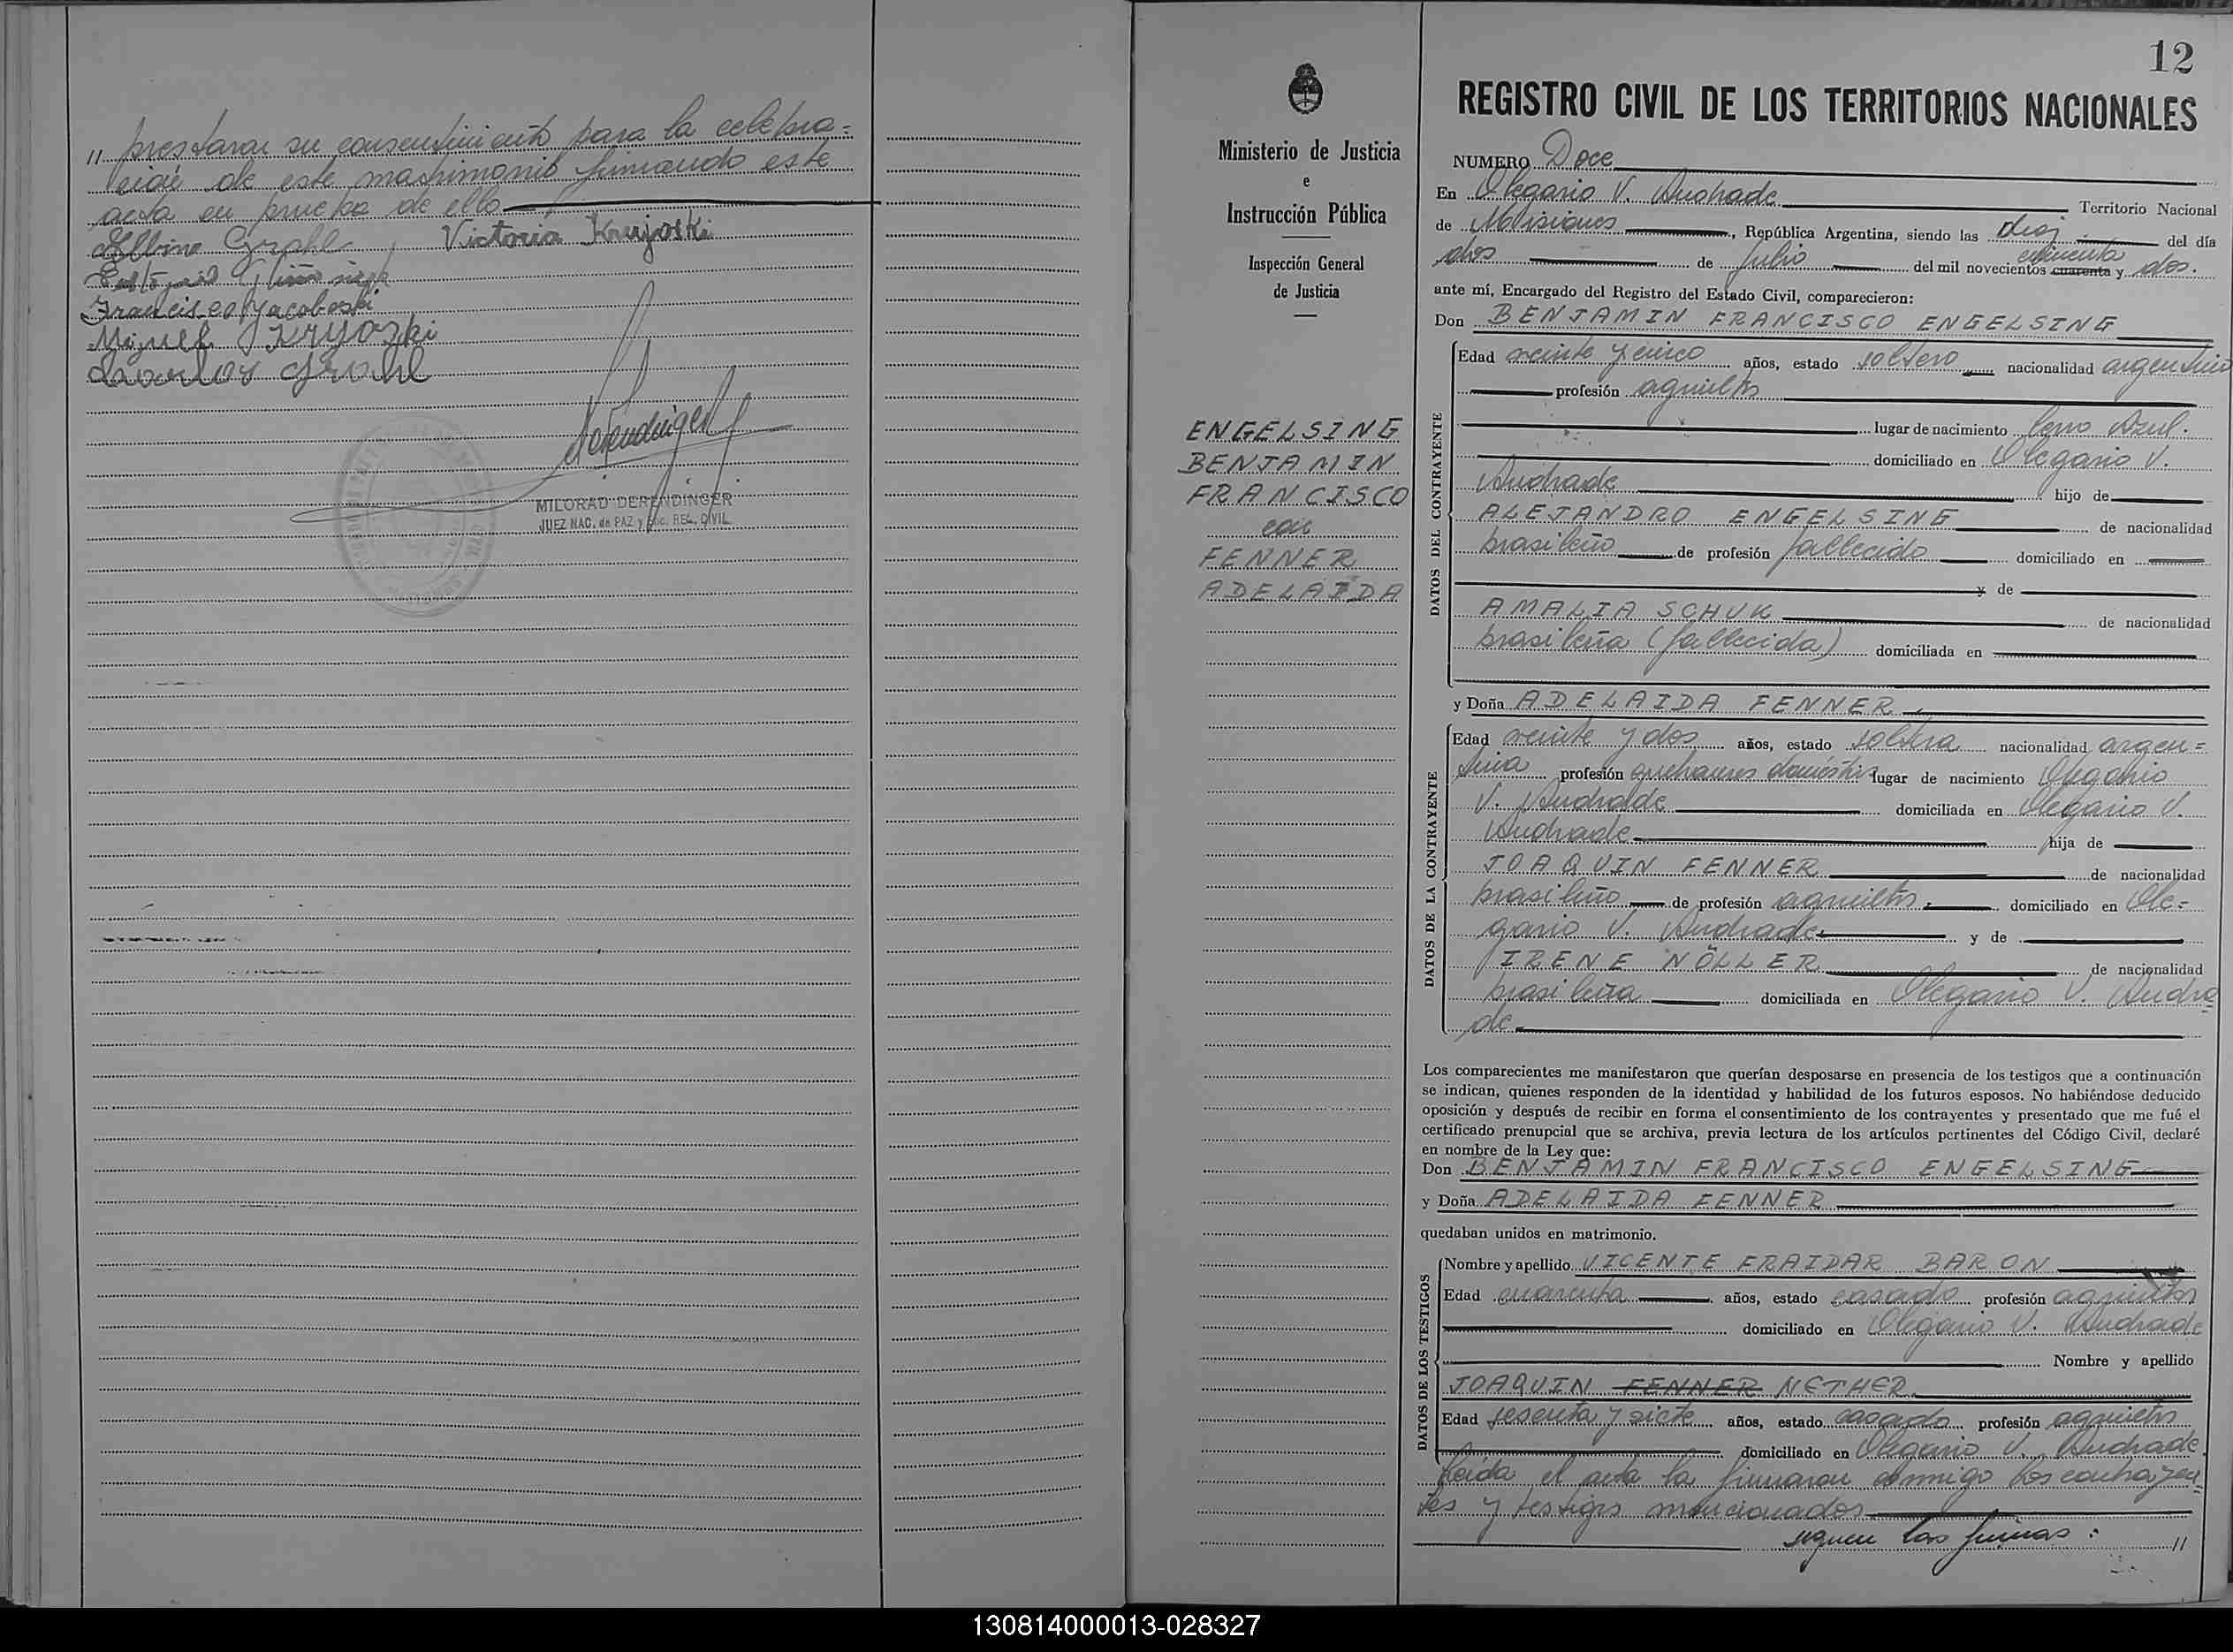 " prestaron su consentimiento para la celebra=
ción de este matrimonio firmando este
acta en prueba de ello
Albino Grahl, Victoria Krujoski
Francisco Yacoboski
Miguel Kryozki
Carlos Grahl
Derendinger
MILORAD DERENDINGER
JUEZ NAC. de PAZ y Enc. REG. CIVIL
12
Ministerio de Justicia
e
Instrucción Pública
Inspección General
de Justicia
ENGELSING
BENJAMIN
FRANCISCO
con
FENNER
ADELAIDA
REGISTRO CIVIL DE LOS TERRITORIOS NACIONALES
NUMERO Doce
En Olegario V. Andrade Territorio Nacional
de Misiones, República Argentina, siendo las diez del día
dos de Julio del mil novecientos cuarenta cincuenta y dos.
ante mí, Encargado del Registro del Estado Civil, comparecieron:
Don BENJAMIN FRANCISCO ENGELSING
DATOS DEL CONTRAYENTE
Edad veinte y cinco años, estado soltero nacionalidad argentino
profesión agricultor
lugar de nacimiento Cerro Azul.
domiciliado en Olegario V.
Andrade hijo de
ALEJANDRO ENGELSING de nacionalidad
brasileño de profesión fallecido domiciliado en
y de
AMALIA SCHUK de nacionalidad
brasileña (fallecida) domiciliada en
y Doña ADELAIDA FENNER
DATOS DE LA CONTRAYENTE
Edad veinte y dos años, estado soltera nacionalidad argen=
tina profesión quehaceres domésticos lugar de nacimiento Olegario
V. Andrade domiciliada en Olegario V.
Andrade hija de
JOAQUIN FENNER de nacionalidad
brasileño de profesión agricultor domiciliado en Ole=
gario V. Andrade y de
IRENE NÖLLER de nacionalidad
brasileña domiciliada en Olegario V. Andra
de
Los comparecientes me manifestaron que querían desposarse en presencia de los testigos que a continuación
se indican, quienes responden de la identidad y habilidad de los futuros esposos. No habiéndose deducido
oposición y después de recibir en forma el consentimiento de los contrayentes y presentado que me fué el
certificado prenupcial que se archiva, previa lectura de los artículos pertinentes del Código Civil, declaré
en nombre de la Ley que:
Don BENJAMIN FRANCISCO ENGELSING
y Doña ADELAIDA FENNER
quedaban unidos en matrimonio.
DATOS DE LOS TESTIGOS
Nombre y apellido VICENTE FRAIDAR BARON
Edad cuarenta años, estado casado profesión agricultor
domiciliado en Olegario V. Andrade
Nombre y apellido
JOAQUIN FENNER NETHER
Edad sesenta y siete años, estado casado profesión agricultor
domiciliado en Olegario V. Andrade.
Leída el acta la firmaron conmigo los contrayen
tes y testigos mencionados
siguen las firmas: "
130814000013-028327